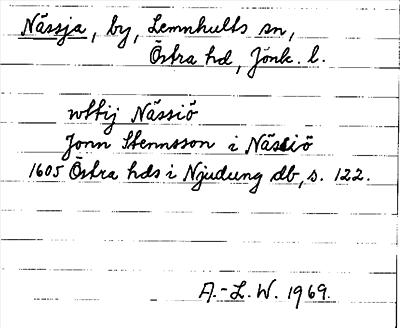 Nässja, by, Lemnhults sn,
Östra hd, Jönk. l.
wttij Nässiö
Jonn Stennsson i Nässiö
1605 Östra hds i Njudung db, s. 122.
A.-L. W. 1969.